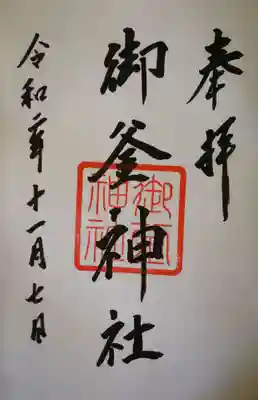 奉拝
御釜神社
令和元年十一月七日
御釜神社